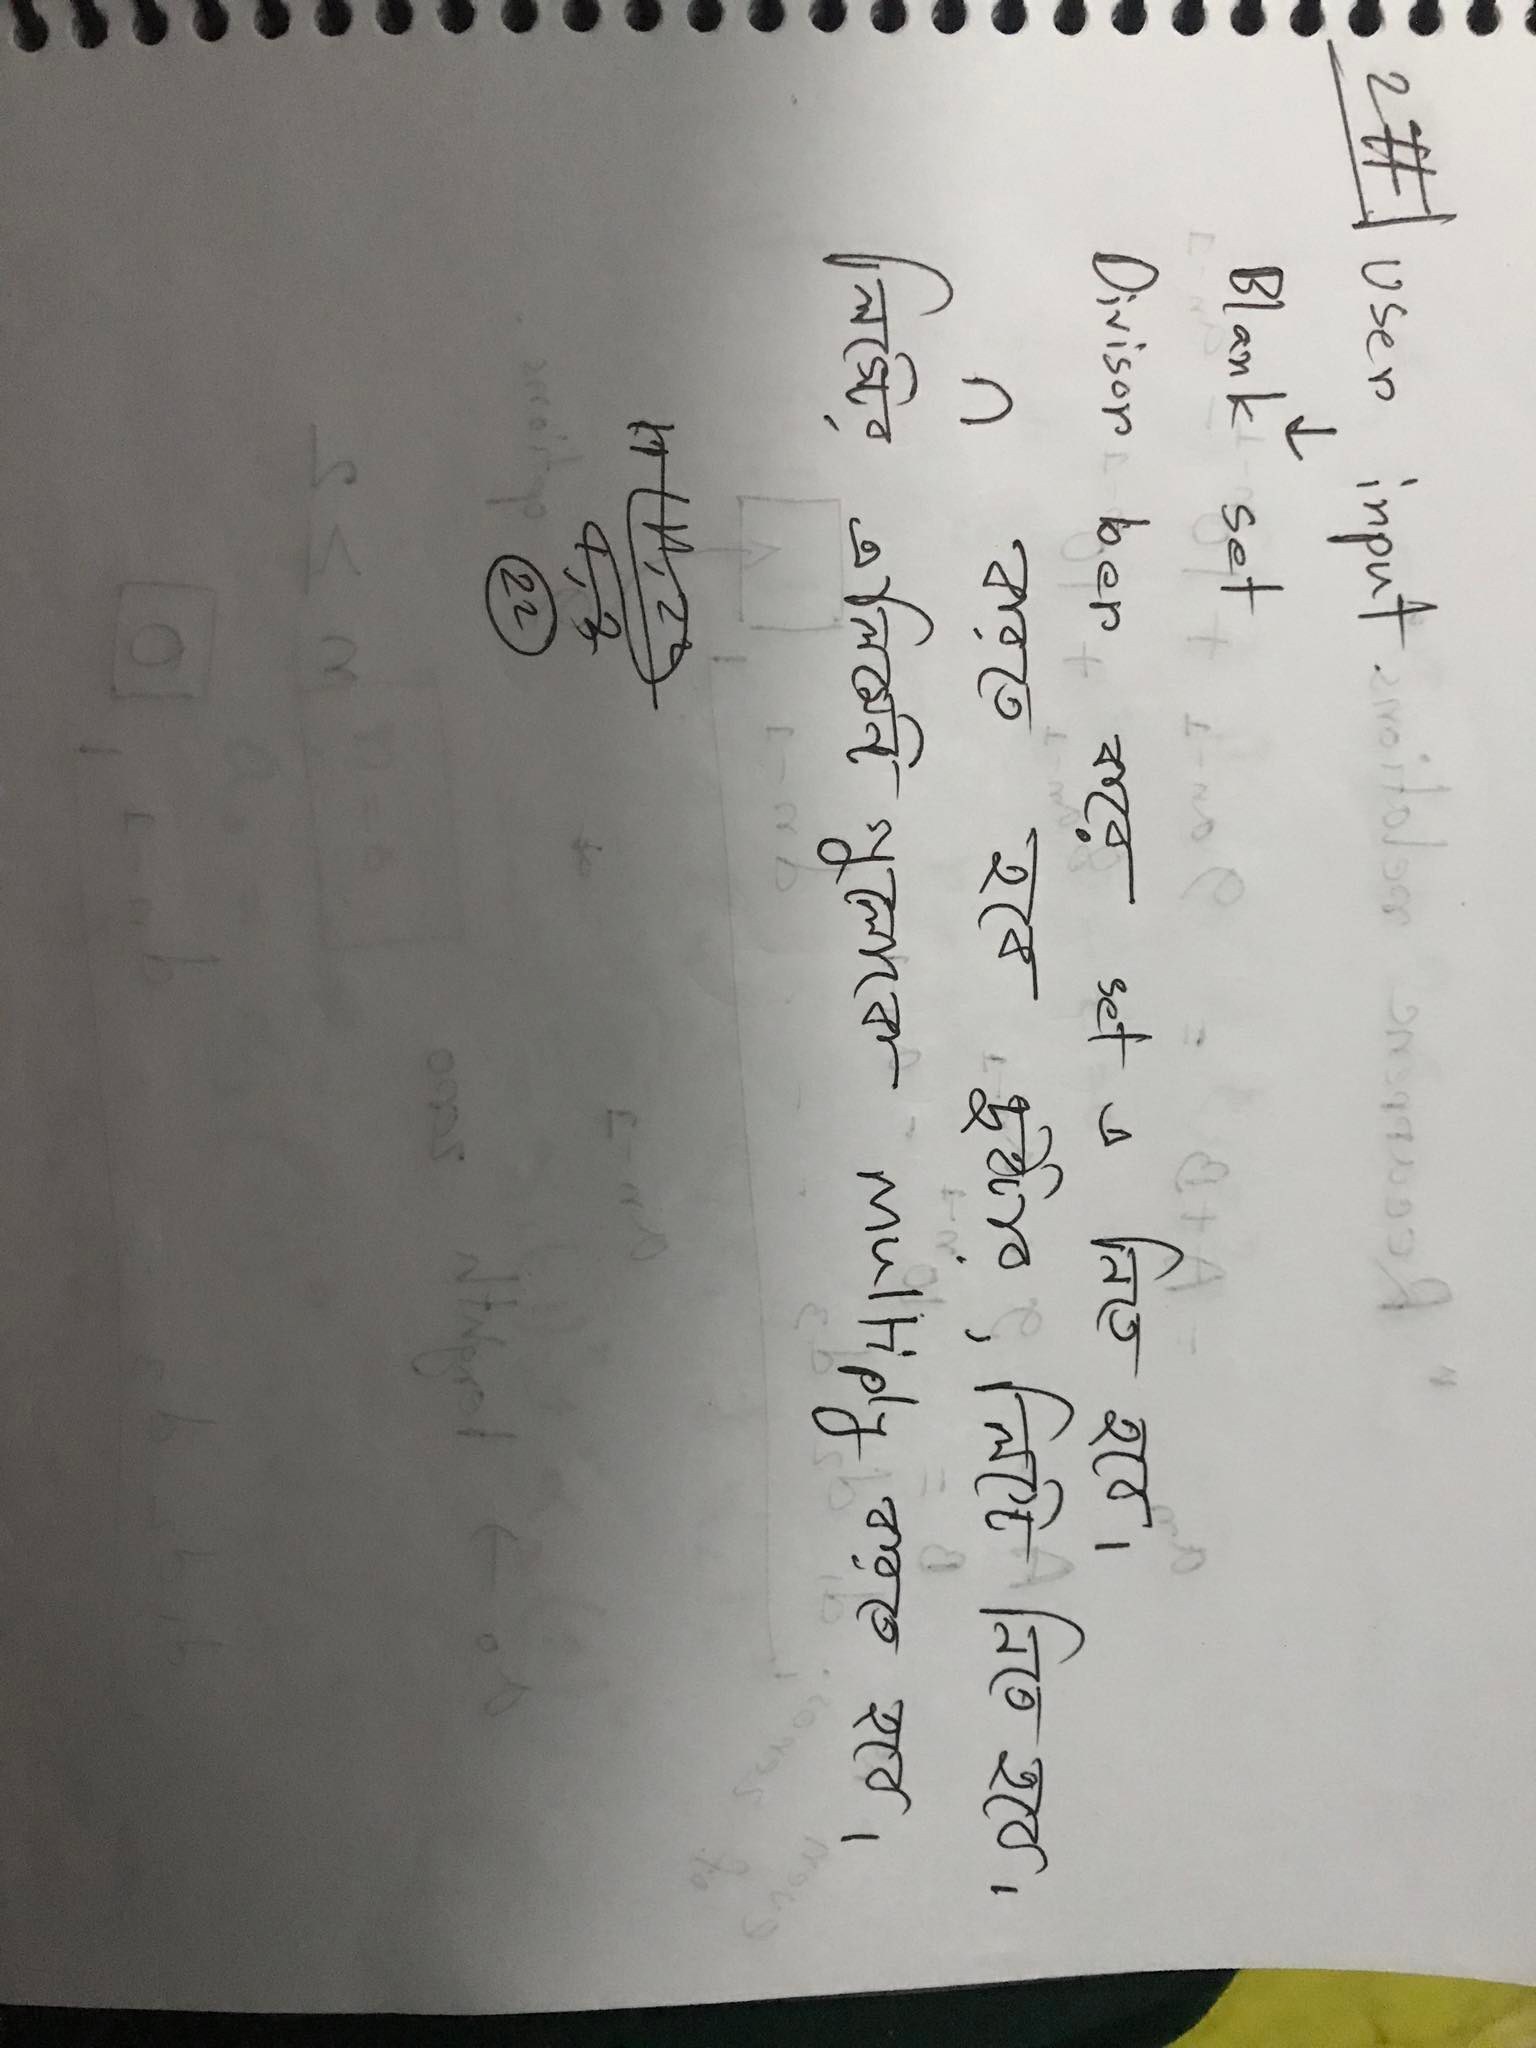 2# User input.
↓
Blank set
Divisor ber করে set এ নিতে হবে।
∩ করতে হবে দুইটার, লিস্টে নিতে হবে।
লিস্টের এলিমেন্ট গুলোকে multiply করতে হবে।
22